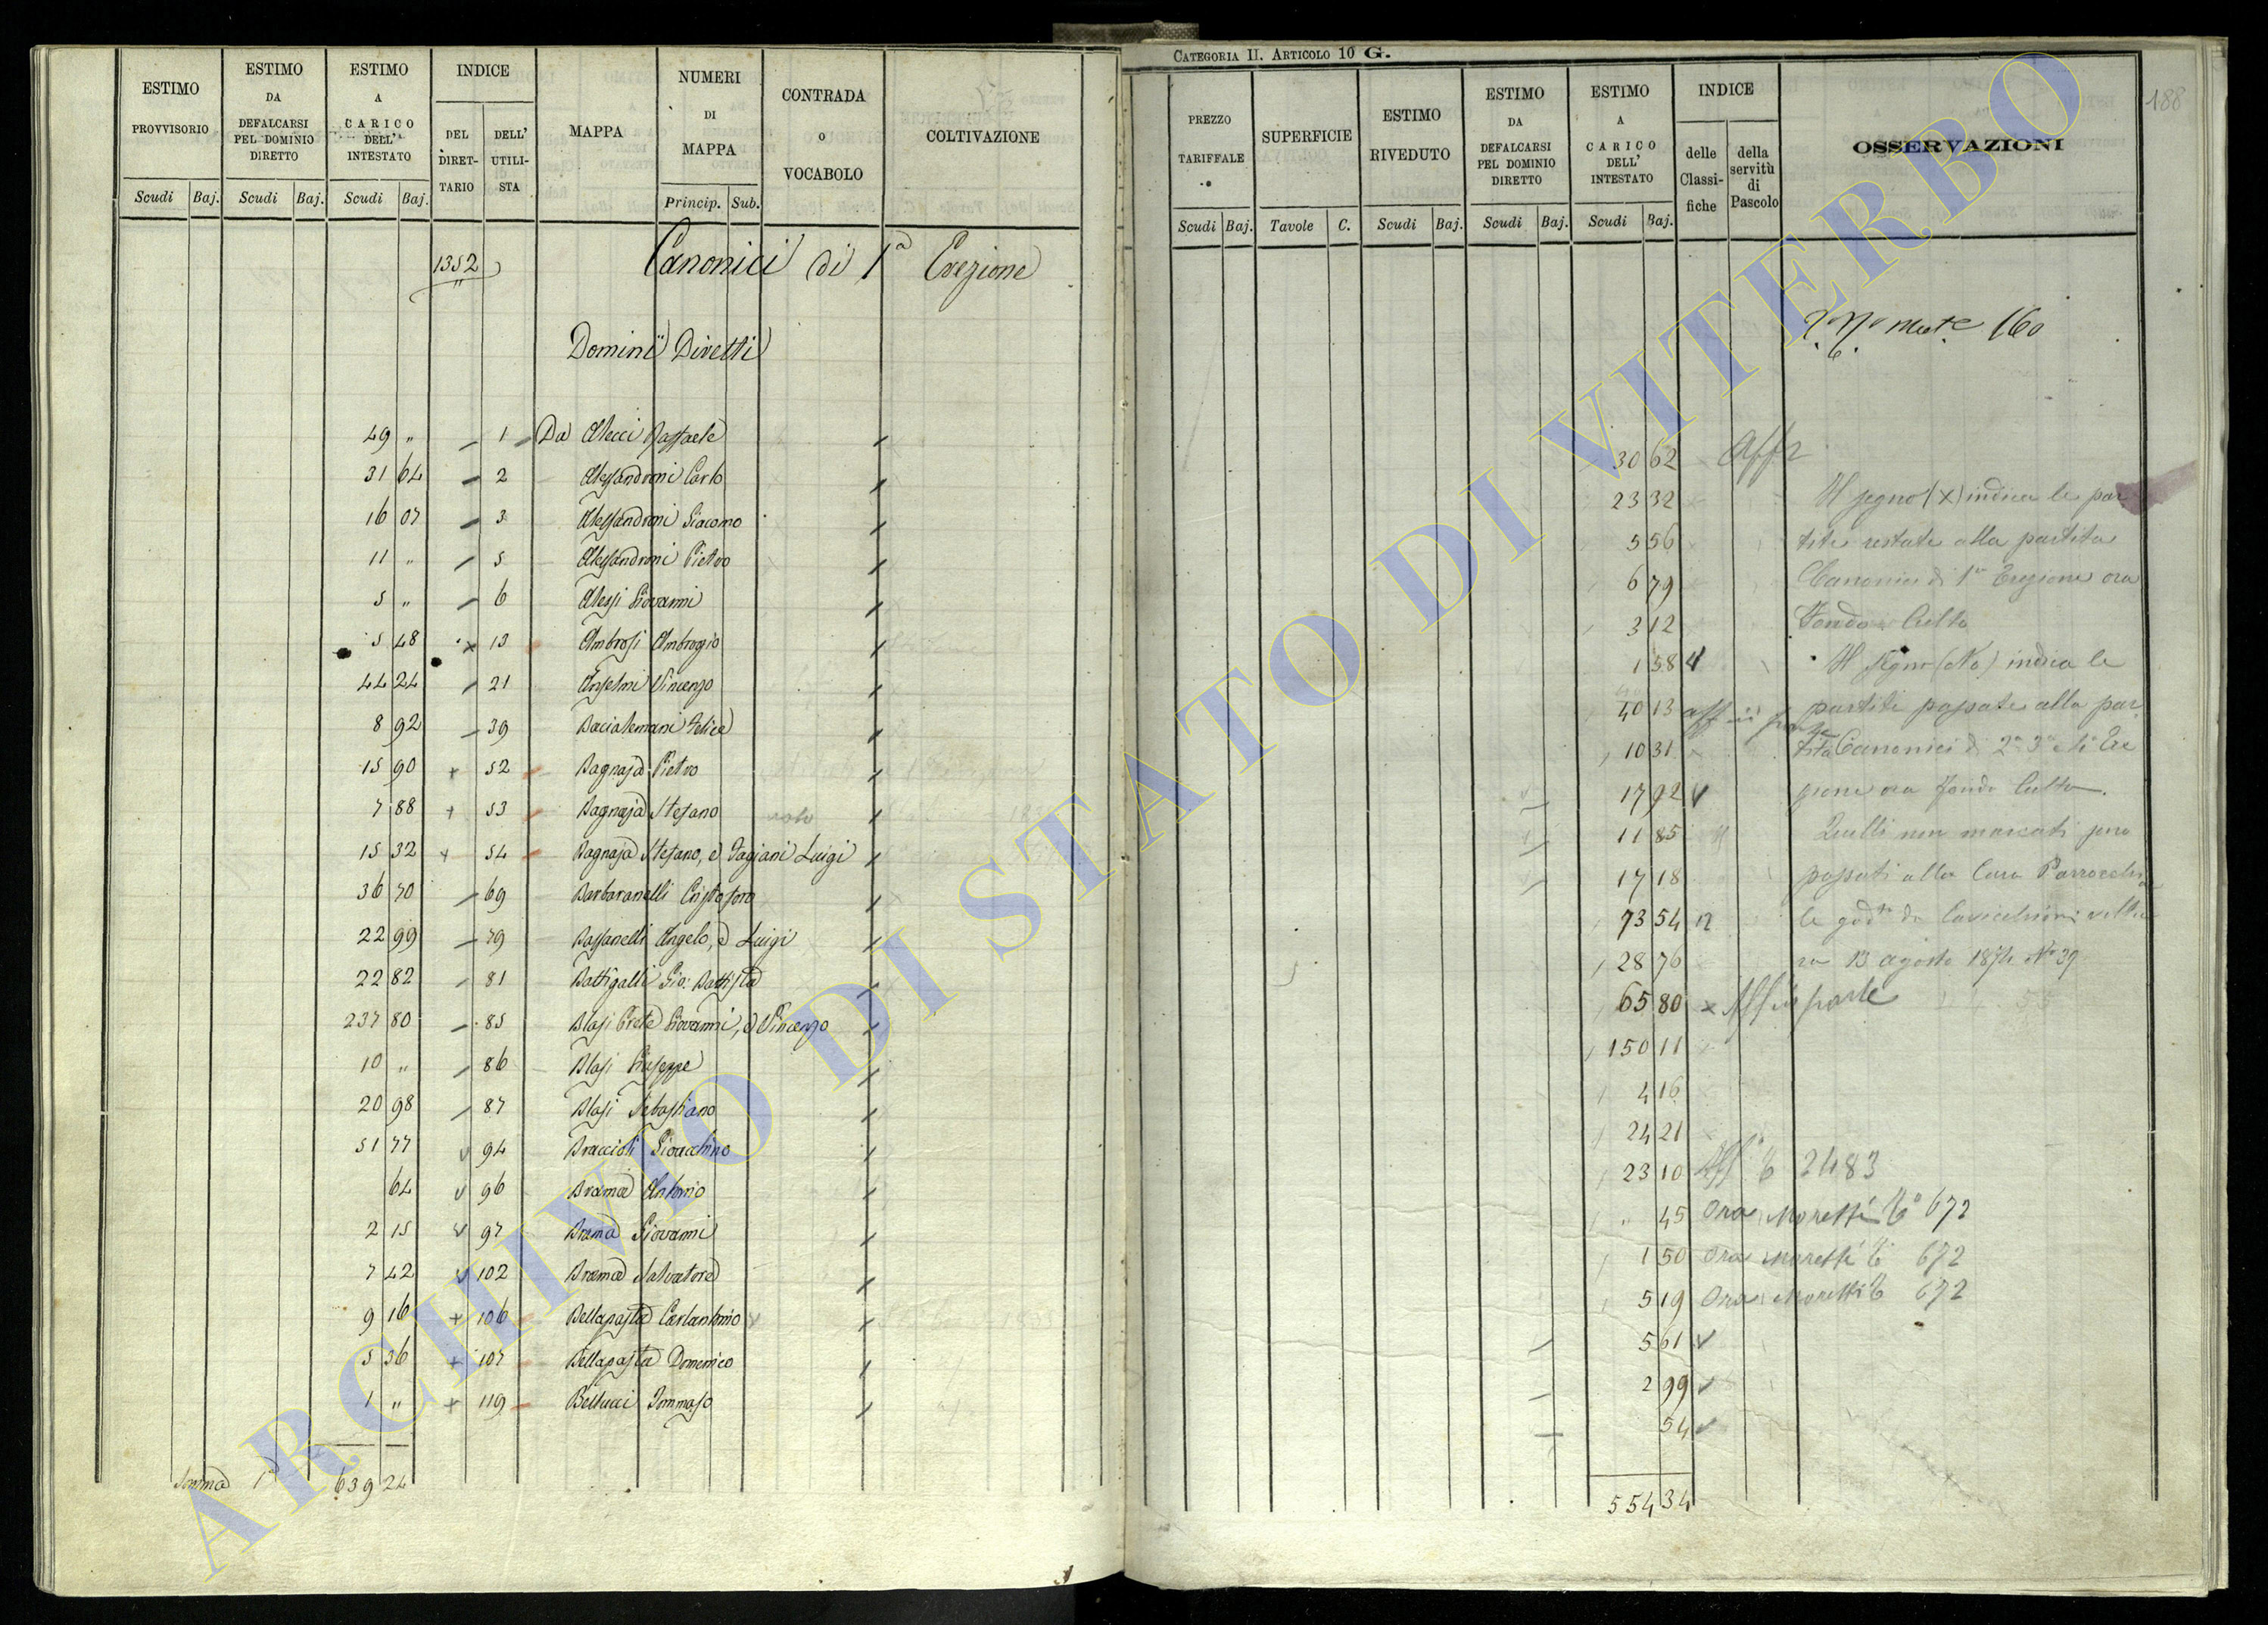 ESTIMO
PROVVISORIO
Scudi Baj.
ESTIMO
DA
DEFALCARSI
PEL DOMINIO
DIRETTO
Scudi Baj.
ESTIMO
A
CARICO
DELL'
INTESTATO
Scudi Baj.
INDICE
DEL
DIRET-
TARIO
DELL'
UTILI-
STA
MAPPA
NUMERI
DI
MAPPA
Princip. Sub.
CONTRADA
o
VOCABOLO
COLTIVAZIONE
1352 Canonici di 1ª Erezione
Dominii Diretti
49 " 1 Da Alecci Raffaele
31 64 2 Alessandroni Carlo
16 07 3 Alessandroni Giacomo
11 " 5 Alessandroni Pietro
5 " 6 Alessi Giovanni
5 48 x 13 Ambrosi Ambrogio
44 24 21 Anselmi Vincenzo
8 92 39 Baciatemani Felice
15 90 + 52 Bagnaja Pietro
7 88 + 53 Bagnaja Stefano
15 32 + 54 Bagnaja Stefano, e Luigi
36 70 69 Barbaranelli Cristoforo
22 99 79 Bassanelli Angelo, e Luigi
22 82 81 Battigalli Gio: Battista
237 80 85 Blasi Prete Giovanni, e Vincenzo
10 " 86 Blasi Giuseppe
20 98 87 Blasi Sebastiano
51 77 v 94 Braccioli Giovacchino
64 v 96 Brama Antonio
2 15 v 97 Brama Giovanni
7 42 v 102 Brama Salvatore
9 16 + 106 Bellapasta Carlantonio
5 36 + 107 Bellapasta Domenico
1 " + 119 Bellucci Tommaso
Somma 1ª 639 24
CATEGORIA II. ARTICOLO 10 G.
188
PREZZO
TARIFFALE
Scudi Baj.
SUPERFICIE
Tavole C.
ESTIMO
RIVEDUTO
Scudi Baj.
ESTIMO
DA
DEFALCARSI
PEL DOMINIO
DIRETTO
Scudi Baj.
ESTIMO
A
CARICO
DELL'
INTESTATO
Scudi Baj.
INDICE
delle
Classi-
fiche
della
servitù
di
Pascolo
OSSERVAZIONI
160
30 62 Affr
23 32 Il segno (x) indica le par
5 56 tite restate alla partita
6 79 Canonici di 1ª Erezione ora
3 12 Fondo Culto
1 58 Il segno (No) indica le
40 13 partite passate alla par
10 31 tita Canonici di 2ª 3ª Ere
17 92 v zione ora Fondo Culto.
11 85 Quelli non marcati sono
17 18 passati alla Cura Parrocchia
73 54 le
28 76 13 agosto 1874 No 39
65 80 x Aff in parte
150 11
4 16
24 21
23 10 2483
" 45 Ora Moretti 672
1 50 Ora Moretti 672
5 19 Ora Moretti 672
5 61 v
2 99 v
54 v
554 34
ARCHIVIO DI STATO DI VITERBO